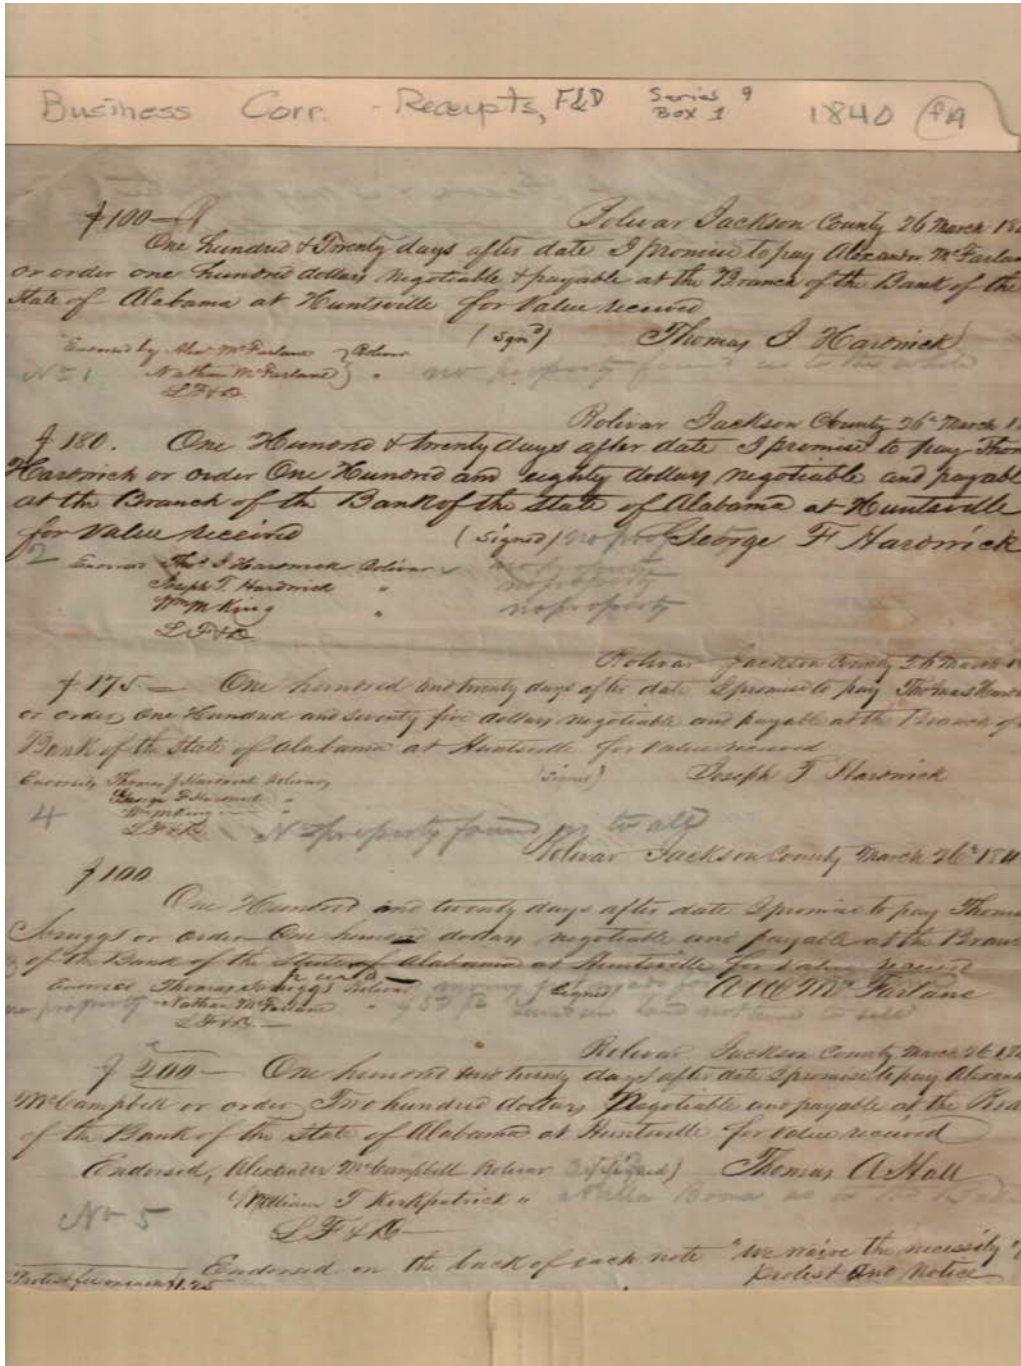 Business Corr. - Receipts, F&D Series 9 Box 1 1840
$100 Bolivar Jackson County 26 March
One hundred & Twenty days after date I promise to pay Alexander McFarlan
or order one hundred dollars negotiable & payable at the Branch of the Bank of the
State of Alabama at Huntsville for Value received
(Sgnd) Thomas J Hardwick
Endorsed by Alexr McFarlane } Bolivar
No 1 Nathan McFarlane } " no property found as to the whole
L F & D.
Bolivar Jackson County 26th March
$180. One Hundred & twenty days after date I promise to pay Thom
Hardwick or order One Hundred and eighty dollars negotiable and payabl
at the Branch of the Bank of the State of Alabama at Huntsville
for Value received (Signed) George F Hardwick
2 Endorsed Thos J Hardwick Bolivar no property
Joseph T. Hardwick " no property
Wm M King " no property
L F & D.
Bolivar Jackson County 26 March
$175— One hundred and twenty days after date I promise to pay Thomas Hard
or order One Hundred and Seventy five dollars negotiable and payable at the Branch of
Bank of the State of Alabama at Huntsville for Value received
Endorsed, Thomas J Hardwick Bolivar, (Signed) Joseph T Hardwick
George F Hardwick "
Wm M King "
4 L F & D. No property found as to all
Bolivar Jackson County March 26th 184
$100
One Hundred and twenty days after date I promise to pay Thomas
Scruggs or order One hundred dollars negotiable and payable at the Bran
of the Bank of the State of Alabama at Huntsville for Value received
Endorsed Thomas Scruggs Bolivar Signed McFarlane
no property Nathan McFarlane "
L F & D.—
Bolivar Jackson County March 26
$200— One hundred and twenty days after date I promise to pay Alexand
McCampbell or order Two hundred dollars Negotiable and payable at the Bra
of the Bank of the State of Alabama at Huntsville for Value received
Endorsed, Alexander McCampbell Bolivar (Signed) Thomas A Hall
William T Kirkpatrick " Nulla Bona as to
No 5
L F & D—
Endorsed on the back of each note "We waive the necessity
Protest and Notice
Protest fee on each $1.25